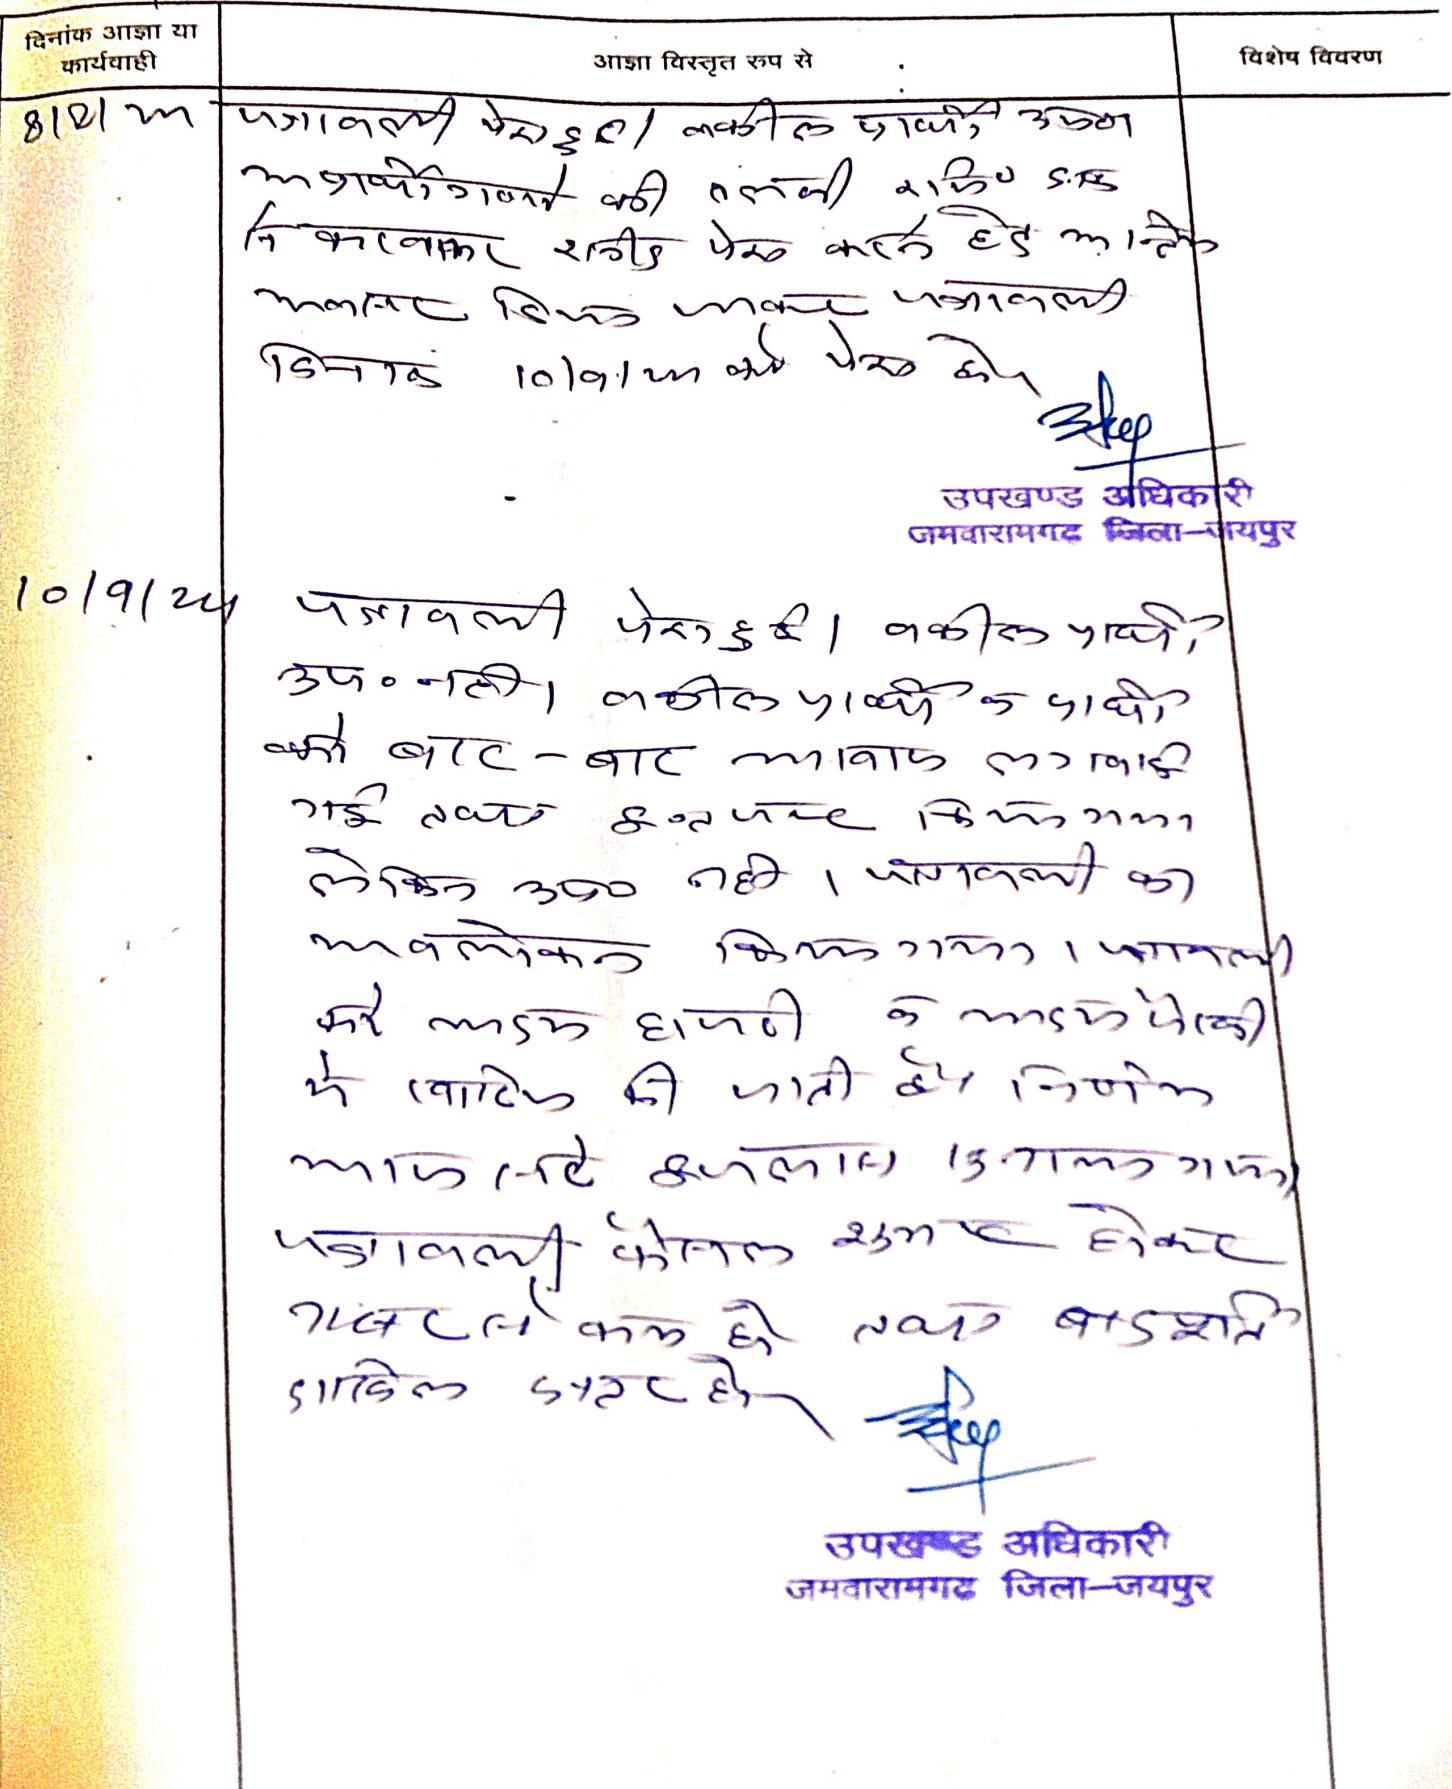 दिनांक आज्ञा या
कार्यवाही
आज्ञा विस्तृत रुप से
विशेष विवरण
पत्रावली पेश हुई। वकील प्रार्थी उप०
अप्रार्थीगणों की तलबी
पेश करने हेतु अन्तिम
अवसर दिया जाकर पत्रावली
दिनांक 10/9/24 को पेश हो।
उपखण्ड अधिकारी
जमवारामगढ जिला-जयपुर
10/9/24
पत्रावली पेश हुई। वकील प्रार्थी
उप० नही। वकील प्रार्थी व प्रार्थी
को बार-बार आवाज लगवाई
गई तथा इन्तजार किया गया
लेकिन उप० नही। पत्रावली का
अवलोकन किया गया। पत्रावली
को अदम हाजरी व अदम पैरवी
मे खारिज की जाती है। निर्णय
आज सरे इजलास सुनाया गया।
पत्रावली फैसल शुमार होकर
नम्बर से कम हो तथा बाद पूर्ति
दाखिल दफ्तर हो।
उपखण्ड अधिकारी
जमवारामगढ जिला-जयपुर